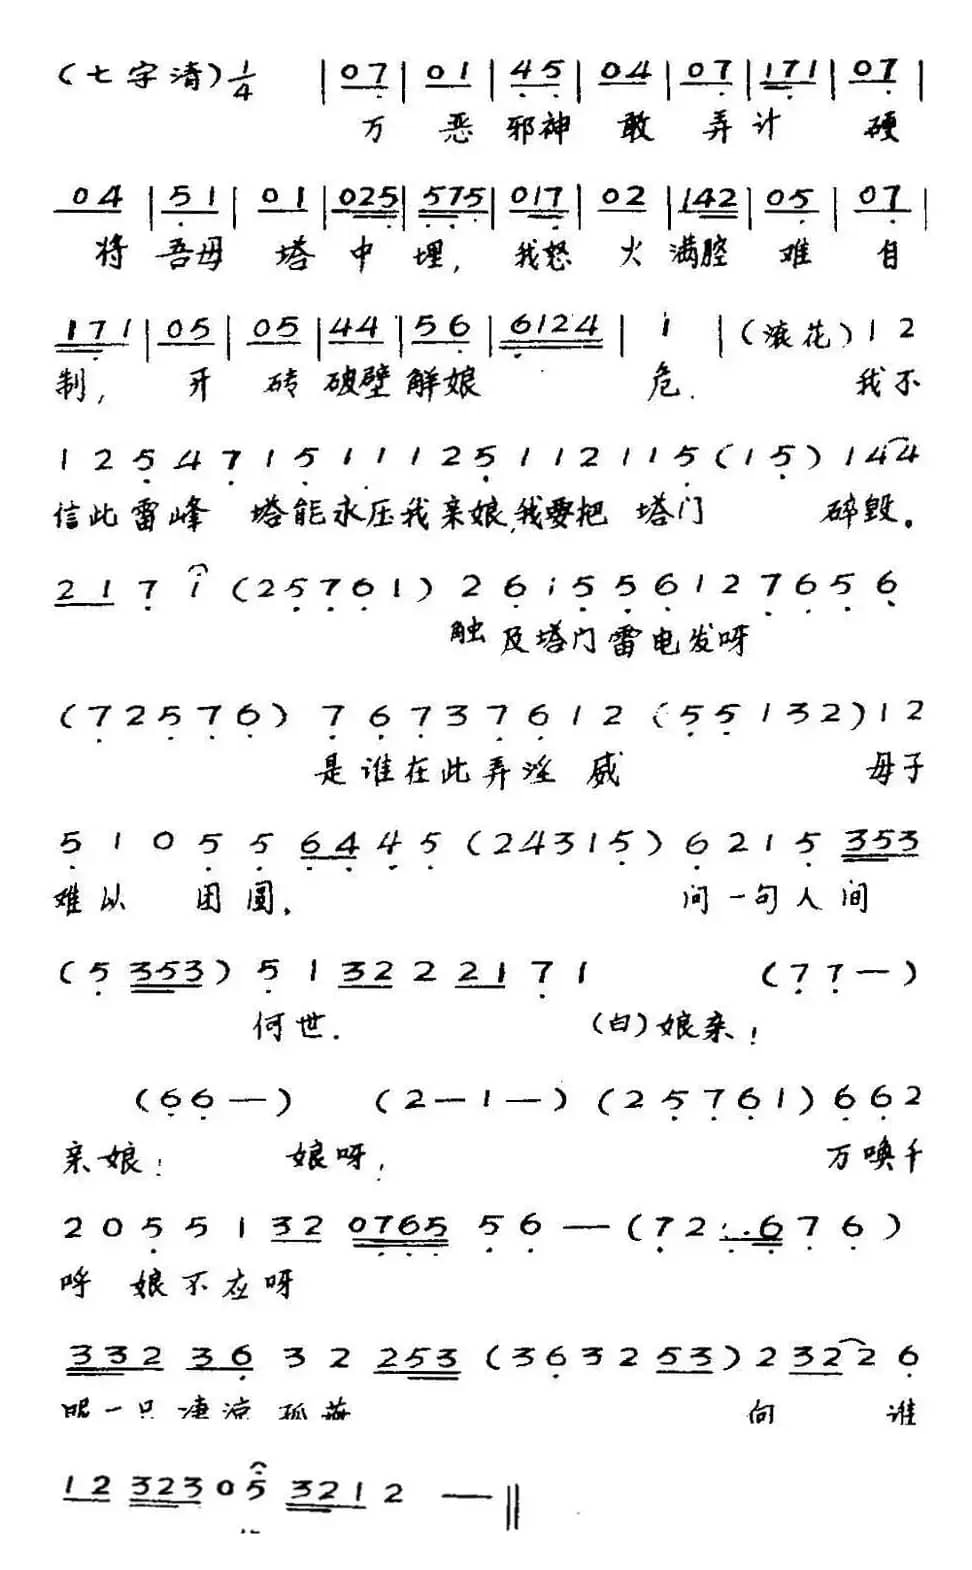 (七字清) 1/4 | 0 7 | 0 1 | 4 5 | 0 4 | 0 7 | 1 7 1 | 0 7 |
万 恶 邪神 敢 弄 计 硬
0 4 | 5 1 | 0 1 | 0 2 5 | 5 7 5 | 0 1 7 | 0 2 | 1 4 2 | 0 5 | 0 7 |
将 吾母 塔 中 埋, 我怒 火 满腔 难 自
1 7 1 | 0 5 | 0 5 | 4 4 | 5 6 | 6 1 2 4 | i | (滚花) 1 2
制, 开 砖 破壁 解娘 危. 我不
1 2 5 4 7 1 5 1 1 1 2 5 1 1 2 1 1 5 (1 5) 1 4 4
信此雷峰 塔能永压我亲娘,我要把 塔门 碎毁。
2 1 7 i (2 5 7 6 1) 2 6 i 5 5 6 1 2 7 6 5 6
触及塔门雷电发呀
(7 2 5 7 6) 7 6 7 3 7 6 1 2 (5 5 1 3 2) 1 2
是谁在此弄淫 威 母子
5 1 0 5 5 6 4 4 5 (2 4 3 1 5) 6 2 1 5 3 5 3
难以 团圆. 问一句人间
(5 3 5 3) 5 1 3 2 2 2 2 1 7 1 (7 7 —)
何世. (白)娘亲!
(6 6 —) (2 — 1 —) (2 5 7 6 1) 6 6 2
亲娘! 娘呀, 万唤千
2 0 5 5 1 3 2 0 7 6 5 5 6 — (7 2 · · 6 7 6)
呼 娘不应呀
3 3 2 3 6 3 2 2 5 3 (3 6 3 2 5 3) 2 3 2 2 6
一只凄凉孤 向 谁
1 2 3 2 3 0 5 3 2 1 2 — ‖